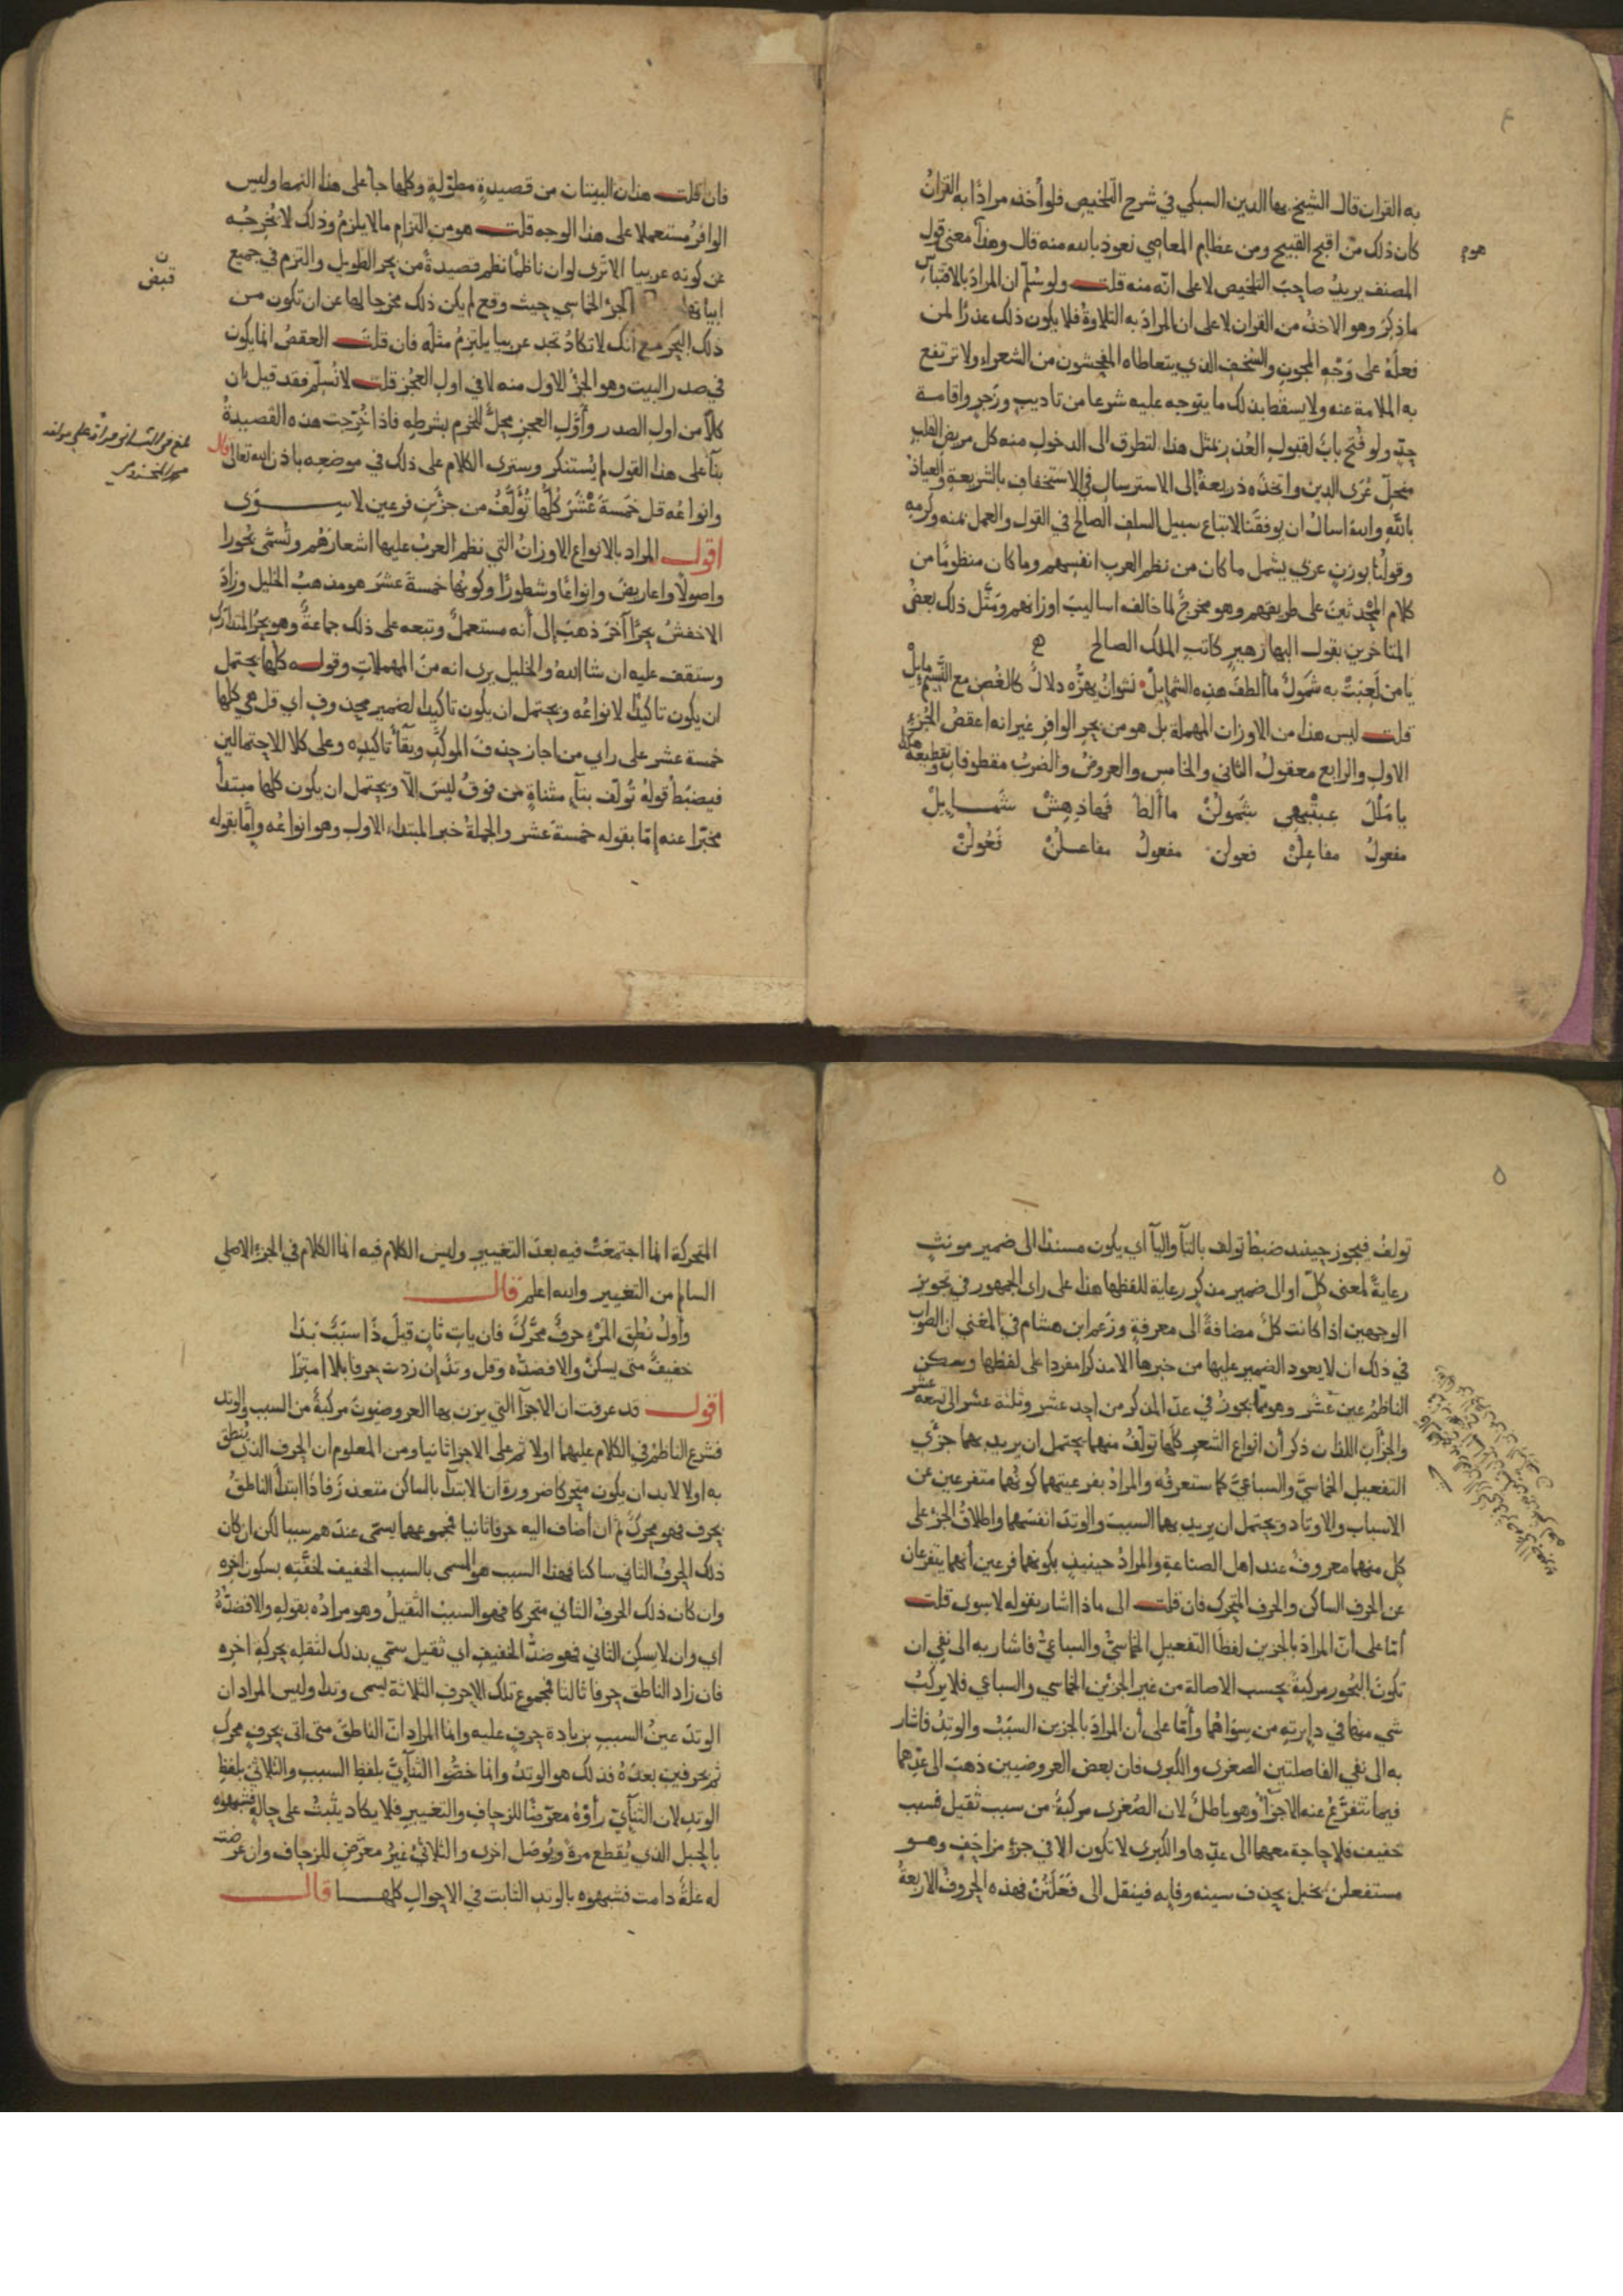 ٤
به القران قال الشيخ بها الدين السبكي في شرح التلخيص فلو أخذ مرادًا به القرانُ
كان ذلك من اقبح القبيح ومن عظايم المعاصي نعوذ بالله منه قال وهذا معنى قول
المصنف يريد صاحبَ التلخيص لا على انّه منه قلت ولو سُلّم ان المرادَ بالاقتباس
ما ذكرَ وهو الاخذُ من القران لا على ان المرادَ به التلاوةُ فلا يكون ذلك عذرًا لمن
فعلَهُ على وَجْهِ المجون والسُخف الذي يتعاطاه المفحشون من الشعراء ولا ترتفع
به الملامة عنه ولا يسقط بذلك ما يتوجه عليه شرعا من تاديبٍ وزجرٍ واقامة
حدٍّ ولو فُتح بابُ لقبول العذر بمثل هذا لتطرق الى الدخول منه كل مريض القلب
منحلّ عُرَى الدين واتخذه ذريعةً إلى الاسترسال في الاستخفاف بالشريعة والعياذ
بالله والله اسال ان يوفقنا لاتباع سبيل السلف الصالح في القول والعمل بمنه وكرمه
وقولنا بوزنٍ عربي يشمل ما كان من نظم العرب انفسهم وما كان منظومًا من
كلام المحدثين على طريقهم وهو مخرجٌ لما خالف اساليبَ اوزانهم ومَثَّل ذلك بعضُ
المتاخرين بقول البها زهير كاتب الملك الصالح
يا من لَعِبَتْ به شَمولٌ ما ألطفَ هذه الشمايلْ نشوانُ يهزُّه دلالٌ كالغُصن مع النَّسيم مايلْ
قلت ليس هذا من الاوزان المهملة بل هو من بحر الوافر غير انه اعقصُ الجُزء
الاول والرابع معقولُ الثاني والخامس والعروضُ والضربُ مقطوفان وتقطيعه هكذا
يا مَنْلَ عِبَتْبِهِي شَمُولُنْ ما ألطَ فَهاذِهِشْ شَمايِلْ
مفعولُ مفاعِلُنْ فعولن مفعولُ مفاعلُنْ فَعُولُنْ
فان قلت هذان البيتان من قصيدةٍ مطوّلةٍ وكلها جاعلى هذا النمط وليس
الوافرُ مستعملا على هذا الوجه قلت هو من التزام ما لا يلزمُ وذلك لا يُخرجُه
عن كونه عربيا الا ترى لو ان ناظمًا نظم قصيدةً من بحر الطويل والتزم في جميع
ابياتها الجزْ الخماسي حيث وقع لم يكن ذلك مخرجا لها عن ان تكون من
ذلك البَحْر مع أنك لا تكادُ تجد عربيا يلتزمُ مثلَه فان قلتَ العقصُ انما يكون
في صدر البيت وهو الجزْ الاول منه لا في اول العجُز قلت لا نُسلّم فقد قيل بان
كلاً من اول الصدر وأوّل العجز محلٌّ للخرم بشرطه فاذا خُرّجت هذه القصيدةُ
بنآ على هذا القول لم يُستنكر وسترى الكلام على ذلك في موضعه باذن الله تعالى قال
وانواعُه قل خمسةَ عْشَرَ كُلّها تُؤَلَّفُ من جزْئين فرعين لا سِوَى
اقول المراد بالانواع الاوزانُ التي نظم العربُ عليها اشعارَهُم وتُسَمَّى بُحُورا
واصولًا واعاريضَ وانواعًا وشطورًا وكونُها خمسةَ عشرَ هو مذهبُ الخليل وزادَ
الاخفشُ بحرًا آخرَ ذهبَ إلى أنه مستعملٌ وتبعه على ذلك جماعةٌ وهو بحرُ المتدارَك
وستقف عليه ان شا اللهُ والخليل يرى انه من المهملاتِ وقوله كلها يحتمل
ان يكون تاكيدًا لانواعُه ويحتمل ان يكون تاكيدا لضمير محذوف اي قل هي كلها
خمسة عشر على راي من اجاز حذفَ الموكَّد وبقآَ تاكيده وعلى كلا الاحتمالين
فيضبطُ قولهُ تُولّف بتآءٍ مثناةٍ من فوقُ ليسَ الّا ويحتمل ان يكون كلها مبتدأً
مخبرًا عنه إمّا بقوله خمسةَ عشر والجملةُ خبر المبتدا الاول وهو انواعُه وإمّا بقوله
قبض
٥
تولفُ فيجوز حينئذ ضبطُ تولف بالتآ واليآ اي يكون مسندًا الى ضمير مونثٍ
رعايةً لمعنى كلّ او الى ضمير مذكرٍ رعاية للفظها هذا على راى الجمهور في تجويز
الوجهين اذا كانت كلُّ مضافةً الى معرفةٍ وزعم ابن هشام في المغني ان الصواب
في ذلك ان لا يعود الضمير عليها من خبرها الا مذكرا مفردا على لفظها وسكن
الناظمُ عينَ عَشَر وهو ممّا يجوزُ في عدّ المذكر من احد عشر وثلثة عشر الى تسعة عشر
والجزآن اللذان ذكر أن انواع الشعر كلها تولّفُ منهما يحتمل ان يريد بهما جزْئي
التفعيل الخماسيَّ والسباعيَّ كما ستعرفُه والمرادُ بفرعيتهما كونُهما متفرعين عن
الاسباب والاوتاد ويحتمل ان يريد بهما السببَ والوتدَ انفسَهما واطلاقُ الجزْءِ على
كل منهما معروفٌ عند اهل الصناعةِ والمرادُ حينئذٍ بكونهما فرعين أنهما يتفرعان
عن الحرف الساكن والحرف المتحرك فان قلت الى ماذا اشار بقوله لا سِوى قلت
أمّا على أنّ المرادَ بالجزءين لفظا التفعيل الخماسيُّ والسباعيُّ فاشار به الى نفي ان
تكونَ البُحُور مركبةً بحسب الاصالة من غير الجزئين الخماسي والسباعي فلا يركبُ
شي منها في دايرته من سواهما وأمّا على أن المرادَ بالجزين السبَبُ والوتدُ فاشار
به الى نفي الفاصلتين الصغرى والكبرى فان بعض العروضيين ذهبَ الى عدّهما
فيما تتفرّعُ عنه الاجزآُ وهو باطلٌ لان الصُغرى مركبةٌ من سببٍ ثقيلٍ فسبب
خفيف فلا حاجة معهما الى عدّها والكبرى لا تكون الا في جزءٍ مزاحفٍ وهو
مستفعلن يخبل بحذف سينه وفايه فينقل الى فَعَلَتُنْ فهذه الحروفُ الاربعةُ
المتحركة انما اجتمعَتْ فيه بعدَ التغييرِ وليس الكلام فيه انما الكلام في الجزءِ الاصلي
السالم من التغيير والله اعلم قال
وأولُ نُطقِ المَرْءِ حرفٌ محرَّكٌ فان ياتِ ثانٍ قيلَ ذَا سَبَبٌ بَدَا
خفيفٌ متى يسكُنْ والا فضدّه وقل وتدٌ إن زدت حرفا بلا امترَا
اقول قد عرفت ان الاجزآ التي يزن بها العروضيون مركبةٌ من السبب والوتد
فشرعَ الناظمُ في الكلام عليهما اولا ثم على الاجزا ثانيا ومن المعلوم ان الحرف الذي يُنطق
به اولا لا بد ان يكون متحركا ضرورة ان الابتدآ بالساكن متعذر فاذا ابتدأ الناطقُ
بحرف فهو محركٌ ثم ان أضاف اليه حرفا ثانيا فمجموعهما يسمى عندهم سببا لكن ان كان
ذلك الحرفُ الثاني ساكنا فهذا السبب هو المسمى بالسبب الخفيف لخفّتِه بسكون اخره
وان كان ذلك الحرفُ الثاني متحركا فهو السببُ الثقيلُ وهو مرادُه بقوله والا فضدّهُ
اي وان لا يسكن الثاني فهو ضدُّ الخفيف اي ثقيل سمي بذلك لثقله بحركة اخره
فان زاد الناطقُ حرفا ثالثا فمجموع تلك الاحرف الثلاثة يسمى وتدا وليس المراد ان
الوتدَ عينُ السبب بزيادة حرفٍ عليه وانما المراد انّ الناطقَ متى اتى بحرفٍ محرك
ثم بحرفين بعدَهُ فذلك هو الوتدُ وانما خصُّوا الثنآئيَّ بلفظ السبب والثلاثيَّ بلفظِ
الوتد لان الثنآئيّ رأوْهُ معرّضًا للزحاف والتغيير فلا يكاد يثبتُ على حالةٍ فشبهوه
بالحبل الذي يُقطع مرةً ويُوصَل اخرى والثلاثيُّ غيرُ معرّضٍ للزحاف وان عرضته
له علةٌ دامت فشبهوه بالوتد الثابت في الاحوال كلها قال